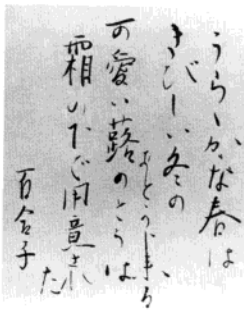 うらゝかな春は
きびしい冬の
あとから来る
可愛い蕗のとうは
霜の下で用意され
た
百合子